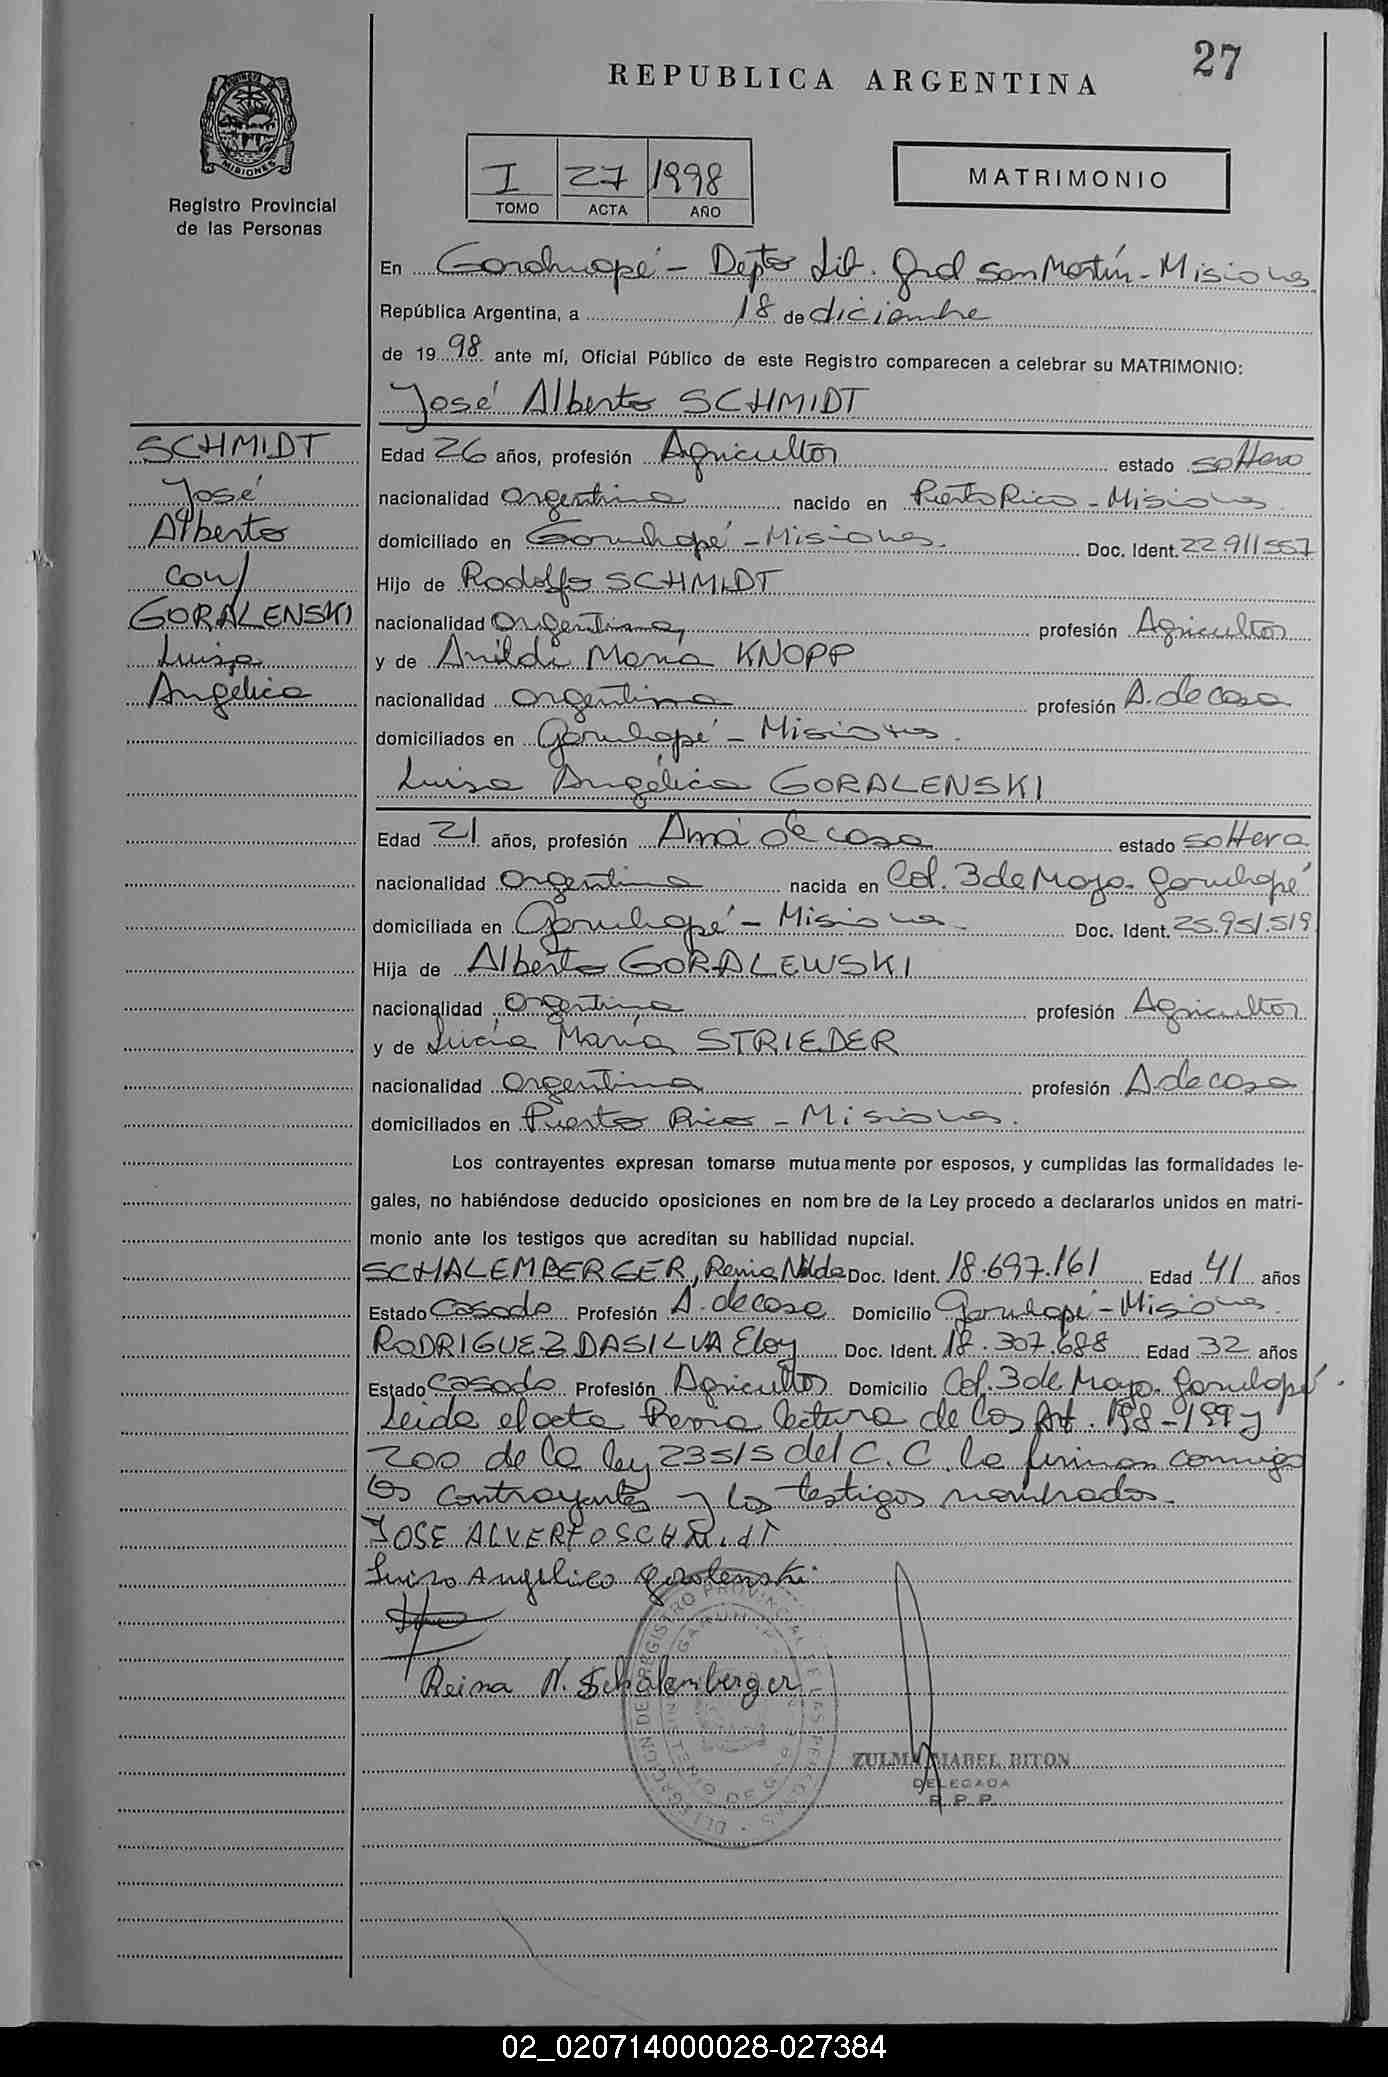 27
REPUBLICA ARGENTINA
MISIONES
Registro Provincial
de las Personas
I 27 1998
TOMO ACTA AÑO
MATRIMONIO
En Garuhapé - Depto Lib. Gral San Martín - Misiones
República Argentina, a 18 de diciembre
de 1998 ante mí, Oficial Público de este Registro comparecen a celebrar su MATRIMONIO:
José Alberto SCHMIDT
SCHMIDT
José
Alberto
con/
GORALENSKI
Luisa
Angélica
Edad 26 años, profesión Agricultor estado soltero
nacionalidad argentina nacido en Puerto Rico - Misiones
domiciliado en Garuhapé - Misiones. Doc. Ident. 22.911.557
Hijo de Rodolfo SCHMIDT
nacionalidad argentina, profesión Agricultor
y de Anildi María KNOPP
nacionalidad argentina profesión A. de casa
domiciliados en Garuhapé - Misiones.
Luisa Angélica GORALENSKI
Edad 21 años, profesión Ama de casa estado soltera
nacionalidad argentina nacida en Col. 3 de Mayo. Garuhapé
domiciliada en Garuhapé - Misiones Doc. Ident. 25.951.519
Hija de Alberto GORALEWSKI
nacionalidad argentina profesión Agricultor
y de Lucía María STRIEDER
nacionalidad argentina profesión A. de casa
domiciliados en Puerto Rico - Misiones.
Los contrayentes expresan tomarse mutuamente por esposos, y cumplidas las formalidades le-
gales, no habiéndose deducido oposiciones en nombre de la Ley procedo a declararlos unidos en matri-
monio ante los testigos que acreditan su habilidad nupcial.
SCHALEMBERGER, Nilda Doc. Ident. 18.697.161 Edad 41 años
Estado Casada Profesión A. de casa Domicilio Garuhapé - Misiones.
RODRIGUEZ DASILVA Eloy Doc. Ident. 18.307.688 Edad 32 años
Estado Casado Profesión Agricultor Domicilio Col. 3 de Mayo. Garuhapé.
Leida el acta Previa lectura de los Art. 198-199 y
200 de la ley 23515 del C.C. la firman conmigo
los contrayentes y los testigos nombrados.
JOSE ALVERTO SCHMidT
Luisa Angelica Goralenski
Reina N. Schalemberger
DELEGACION DE REGISTRO PROVINCIAL DE LAS PERSONAS
ZULMA MABEL BITON
DELEGADA
R. P. P.
02_020714000028-027384